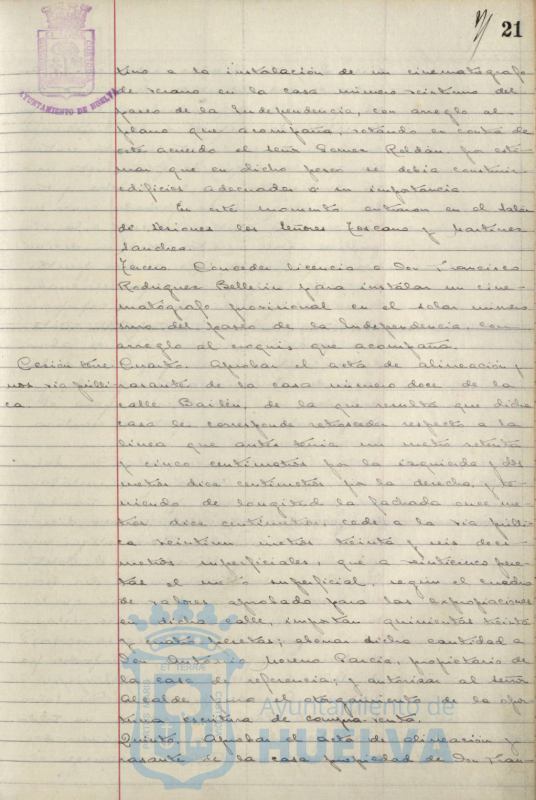 21
AYUNTAMIENTO DE HUELVA
tivo a la instalación de un cinematógrafo
de verano en la casa número veintiuno del
paseo de la Independencia, con arreglo al
plano que acompaña, votando en contra de
este acuerdo el Señor Gomez Roldán, por esti-
mar que en dicho paseo se debia construir
edificios adecuados á su importáncia.
En este momento entraron en el Salón
de Sesiones los Señores Toscano y Martinez
Sanchez.
Tercero. Conceder licencia a Don Francisco
Rodriguez Bellerin para instalar un cine-
matógrafo provisional en el solar número
uno del paseo de la Independencia, con
arreglo al croquis que acompaña.
Cesión terre
nos via públi
ca.
Cuarto. Aprobar el acta de alineación y
rasante de la casa número doce de la
calle Bailén, de la que resulta que dicha
casa le corresponde retroceder respecto a la
linea que antes tenia un metro setenta
y cinco centimetros por la izquierda y dos
metros diez centimetros por la derecha, y te-
niendo de longitud la fachada once me-
tros diez centimetros, cede a la via públi-
ca veintiun metros treinta y seis deci-
metros superficiales, que a veinticinco pese-
tas el metro superficial, segun el cuadro
de valores aprobado para las expropiaciones
en dicha calle, importan quinientas treinta
y cuatro pesetas; abonar dicha cantidad a
Don Antonio Moreno Garcia, propietario de
la casa de referencia, y autorizar al señor
Alcalde para el otorgamiento de la opor-
tuna escritura de compra-venta.
Quinto. Aprobar el acta de alineación y
rasante de la casa propiedad de Don Fran-
Ayuntamiento de
HUELVA